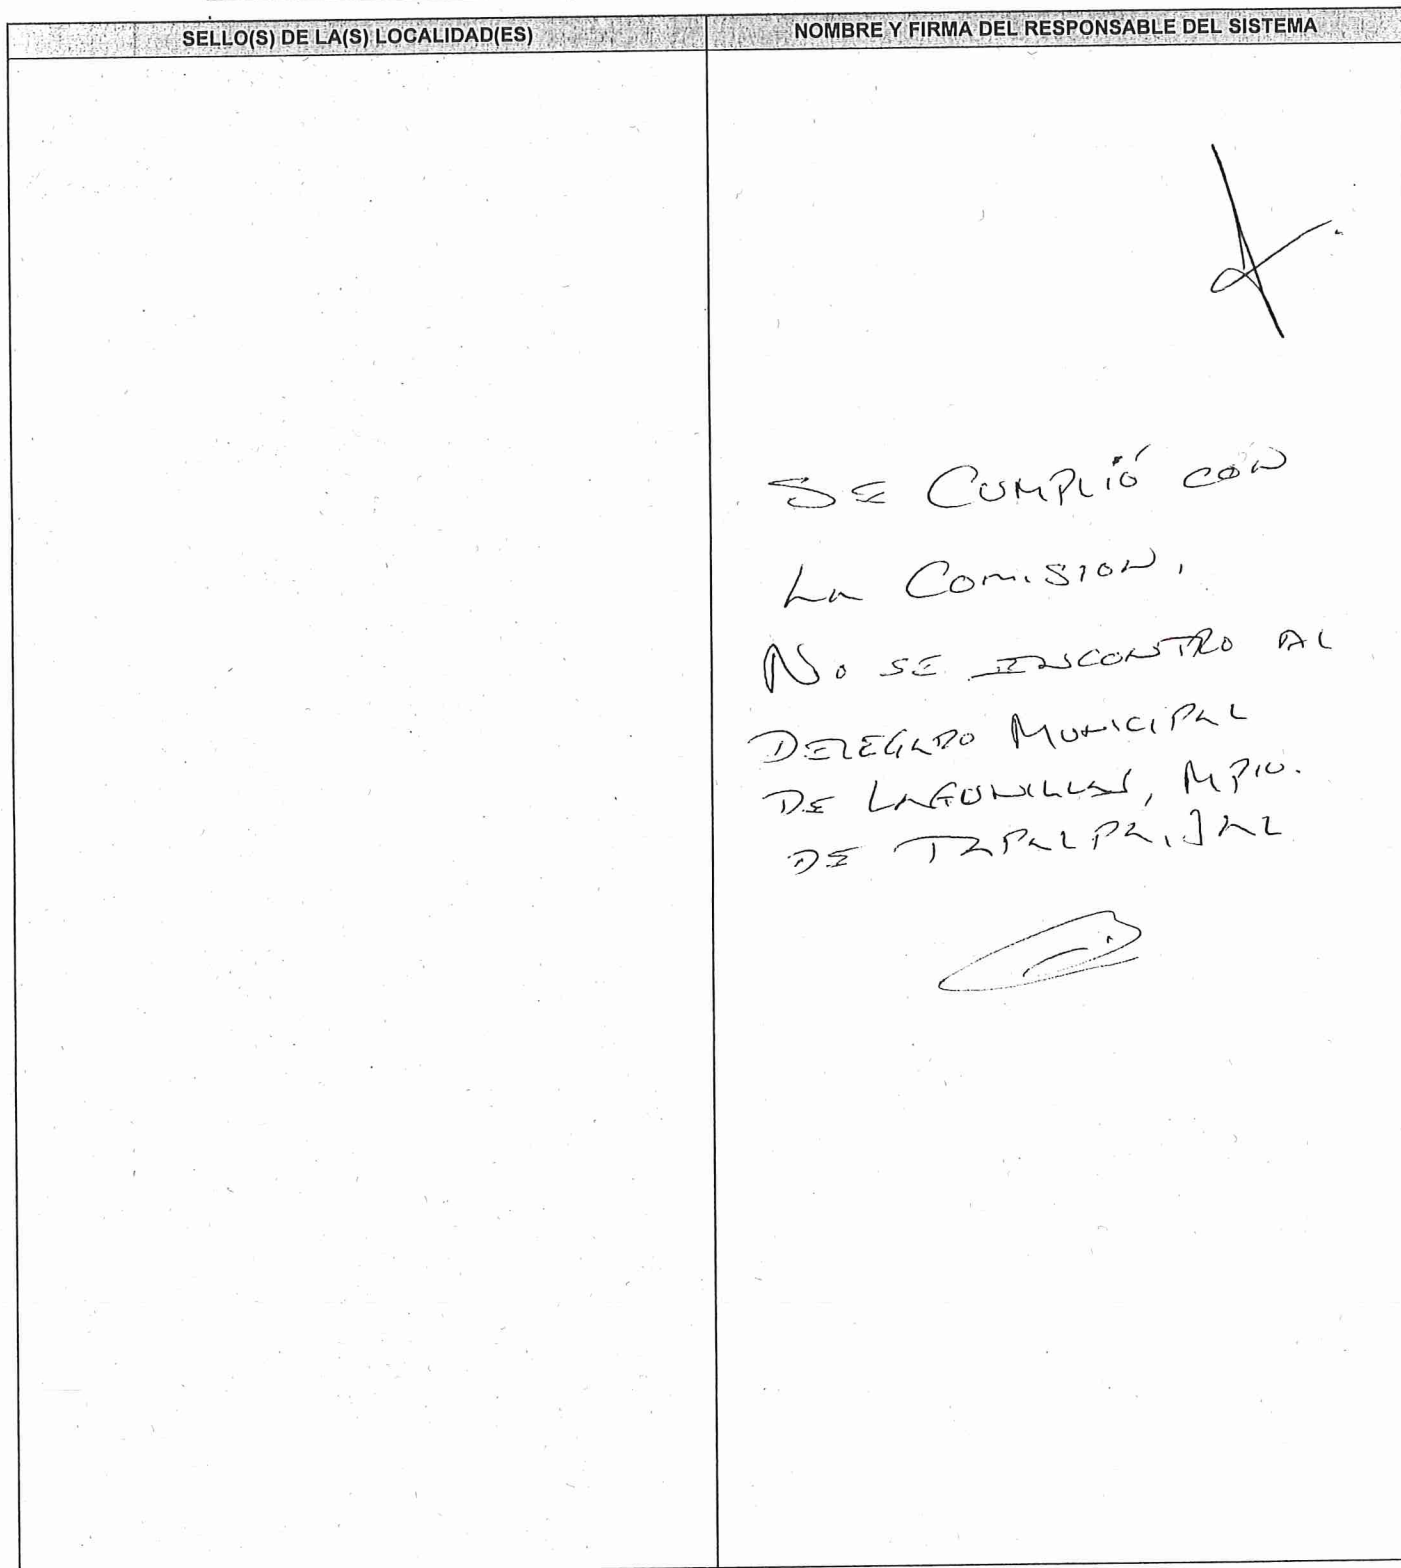 SELLO(S) DE LA(S) LOCALIDAD(ES)
NOMBRE Y FIRMA DEL RESPONSABLE DEL SISTEMA
SE CUMPLIÓ CON
La Comision,
No SE ENCONTRO AL
DELEGADO MUNICIPAL
DE LAGUNILLAS, MPIO.
DE TAPALPA, JAL